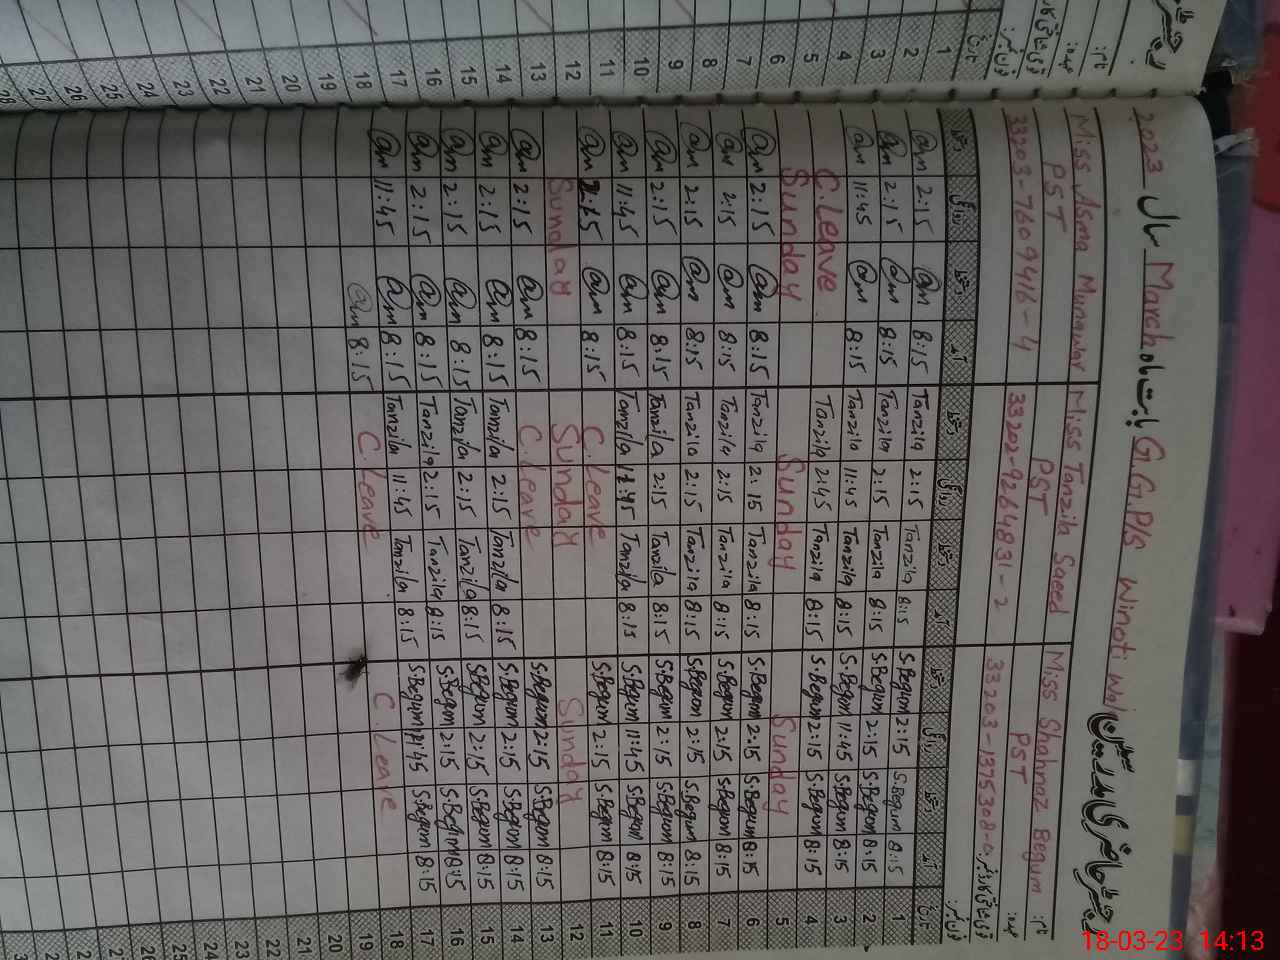 رجسٹر حاضری معلمین G.G.P/S Winoti Wal بابت ماہ March سال 2023
Miss Asma Munawar Miss Tanzila Saeed Miss Shahnaz Begum نام:
PST PST PST عہدہ:
33203-7609416-4 33202-9264831-2 33203-1375308-0 قومی شناختی کارڈ نمبر:
فون نمبر:
دستخط روانگی دستخط آمد دستخط روانگی دستخط آمد دستخط روانگی دستخط آمد تاریخ
2:15 8:15 Tanzila 2:15 Tanzila 8:15 S.Begum 2:15 S.Begum 8:15 1
2:15 8:15 Tanzila 2:15 Tanzila 8:15 S.Begum 2:15 S.Begum 8:15 2
11:45 8:15 Tanzila 11:45 Tanzila 8:15 S.Begum 11:45 S.Begum 8:15 3
C.Leave Tanzila 2:45 Tanzila 8:15 S.Begum 2:15 S.Begum 8:15 4
Sunday Sunday Sunday 5
2:15 8:15 Tanzila 2:15 Tanzila 8:15 S.Begum 2:15 S.Begum 8:15 6
2:15 8:15 Tanzila 2:15 Tanzila 8:15 S.Begum 2:15 S.Begum 8:15 7
2:15 8:15 Tanzila 2:15 Tanzila 8:15 S.Begum 2:15 S.Begum 8:15 8
2:15 8:15 Tanzila 2:15 Tanzila 8:15 S.Begum 2:15 S.Begum 8:15 9
11:45 8:15 Tanzila 11:45 Tanzila 8:15 S.Begum 11:45 S.Begum 8:15 10
2:15 8:15 C.Leave S.Begum 2:15 S.Begum 8:15 11
Sunday Sunday Sunday 12
2:15 8:15 C.Leave S.Begum 2:15 S.Begum 8:15 13
2:15 8:15 Tanzila 2:15 Tanzila 8:15 S.Begum 2:15 S.Begum 8:15 14
2:15 8:15 Tanzila 2:15 Tanzila 8:15 S.Begum 2:15 S.Begum 8:15 15
2:15 8:15 Tanzila 2:15 Tanzila 8:15 S.Begum 2:15 S.Begum 8:15 16
11:45 8:15 Tanzila 11:45 Tanzila 8:15 S.Begum 8:15 17
8:15 C.Leave C.Leave 18
19
20
21
22
23
24
25
26
27
18-03-23 14:13